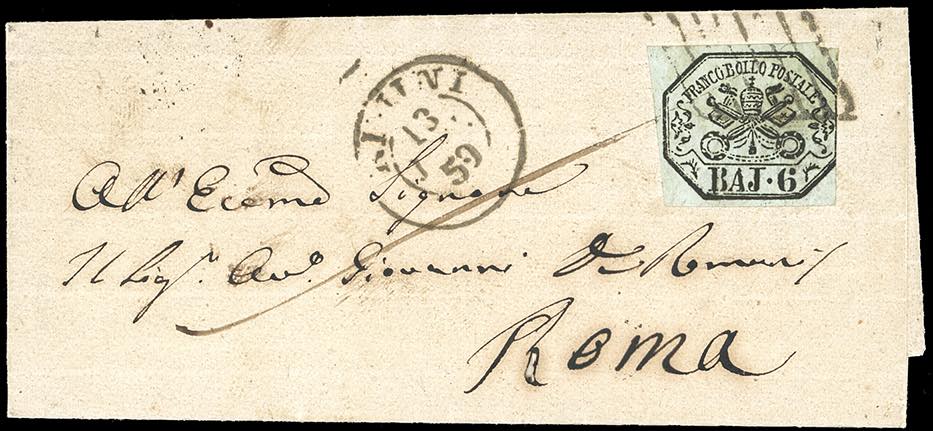 FRANCOBOLLO POSTALE
BAJ. 6
13
59
All' Eccmo Signore
Il Sig.r Avv.o Giovanni De
Roma